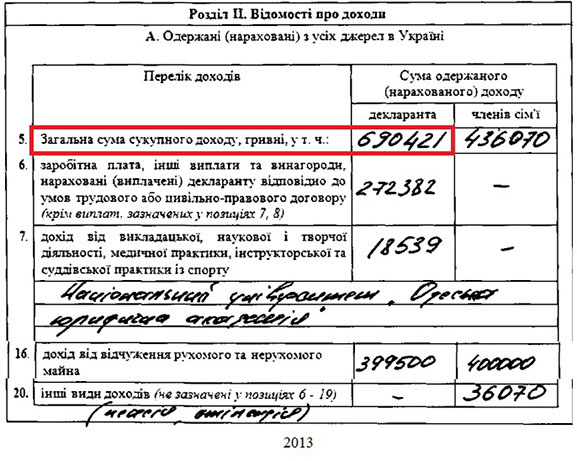 Розділ II. Відомості про доходи
А. Одержані (нараховані) з усіх джерел в Україні
Перелік доходів
Сума одержаного
(нарахованого) доходу
декларанта
членів сім'ї
5. Загальна сума сукупного доходу, гривні, у т. ч.: 690421 436070
6. заробітна плата, інші виплати та винагороди,
нараховані (виплачені) декларанту відповідно до
умов трудового або цивільно-правового договору
(крім виплат, зазначених у позиціях 7, 8)
272382 –
7. дохід від викладацької, наукової і творчої
діяльності, медичної практики, інструкторської та
суддівської практики із спорту
18539 –
Національний університет „Одеська
юридична академія"
16. дохід від відчуження рухомого та нерухомого
майна
399500 400000
20. інші види доходів (не зазначені у позиціях 6 - 19) – 36070
2013